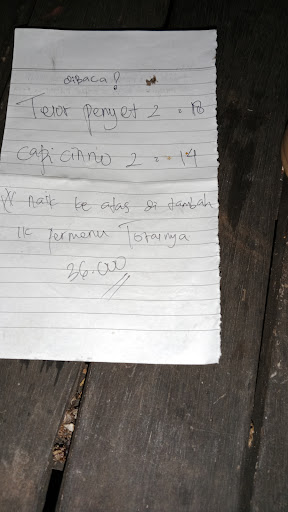 dibaca!
Telor penyet 2 = 18
capicinno 2 = 14
Naik ke atas di tambah
1k permenu Totalnya
36.000